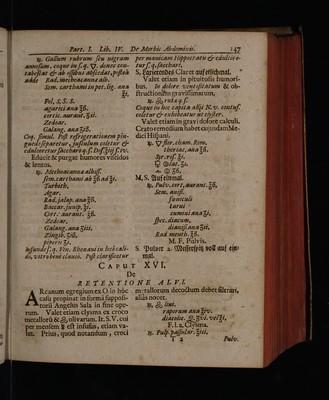 Part. I. Lib. IV. De Morbis Abdominis. 147
℞. Gallum rubrum seu nigrum
annosum, coque in s.q. ▽. donec con-
tabescat & ab ossibus abscedat, postea
adde Rad. mechoacannæ alb.
Sem. carthami in pet. lig. ana
Pol, S. S.
agarici ana
cortic. aurant.
Zedoar.
Galang. ana
Coq. simul. Post refrigerationem pin-
guedo separetur, jusculum coletur &
edulcoretur saccharo q. s.
Educit & purgat humores viscidos
& lentos.
℞. Mechoacannæ albiss.
sem. carthami ab
Turbith,
Agar.
Rad. jalap. ana
Baccar. junip.
Cort. aurant.
Zedoar.
Galang. ana
Zingib.
piperis
Infunde s. q. Vin. Rhenani in bocali-
do, vitro bene clauso. Post clarificetur
per manicam Hippocratu & edulcore-
tur s. q. sacchari.
S. Purierendes Claret auf etlichmal.
Valet etiam in pituitosis humori-
bus. In dolore à ventositatum & ob-
structionem gravissimatum,
℞. rutæ q. s.
Coque in hoc capita albi N. v. contus.
coletur & exhibeatur ut clyster.
Valet etiam in gravi dolore calculi.
Crato remedium habet cujusdam Me-
dici Hispani.
℞. flor. cham. Rom.
thereac, ana
Syr. ros.
M. S. Auf eimal.
℞. Pulv. cort. aurant.
Sem. anisi.
fœniculi
carui
cumini ana
spec. diacum,
dianisi ana
Rad. menth.
M. F. Pulvis.
S. Pulver 2. Messerspitz voll auf ein-
mal.
CAPUT XVI.
De
RETENTIONE ALVI.
ARcanum egregium ex O. in hoc
casu propinat in forma supposi-
torii Angelus Sala in sine ope-
rum. Valet etiam clysma ex croco
metallorũ & olivarum. It. S.V. cui
per mensem est infusus, etiam va-
let. Prius, quod notandum, croci
metallorum decoctum debet filtrari,
aliàs nocet.
℞. lini.
raparum ana
diacatho.
F. l. a. Clysma.
℞. Pulp. passular.
I 2 Pulv.